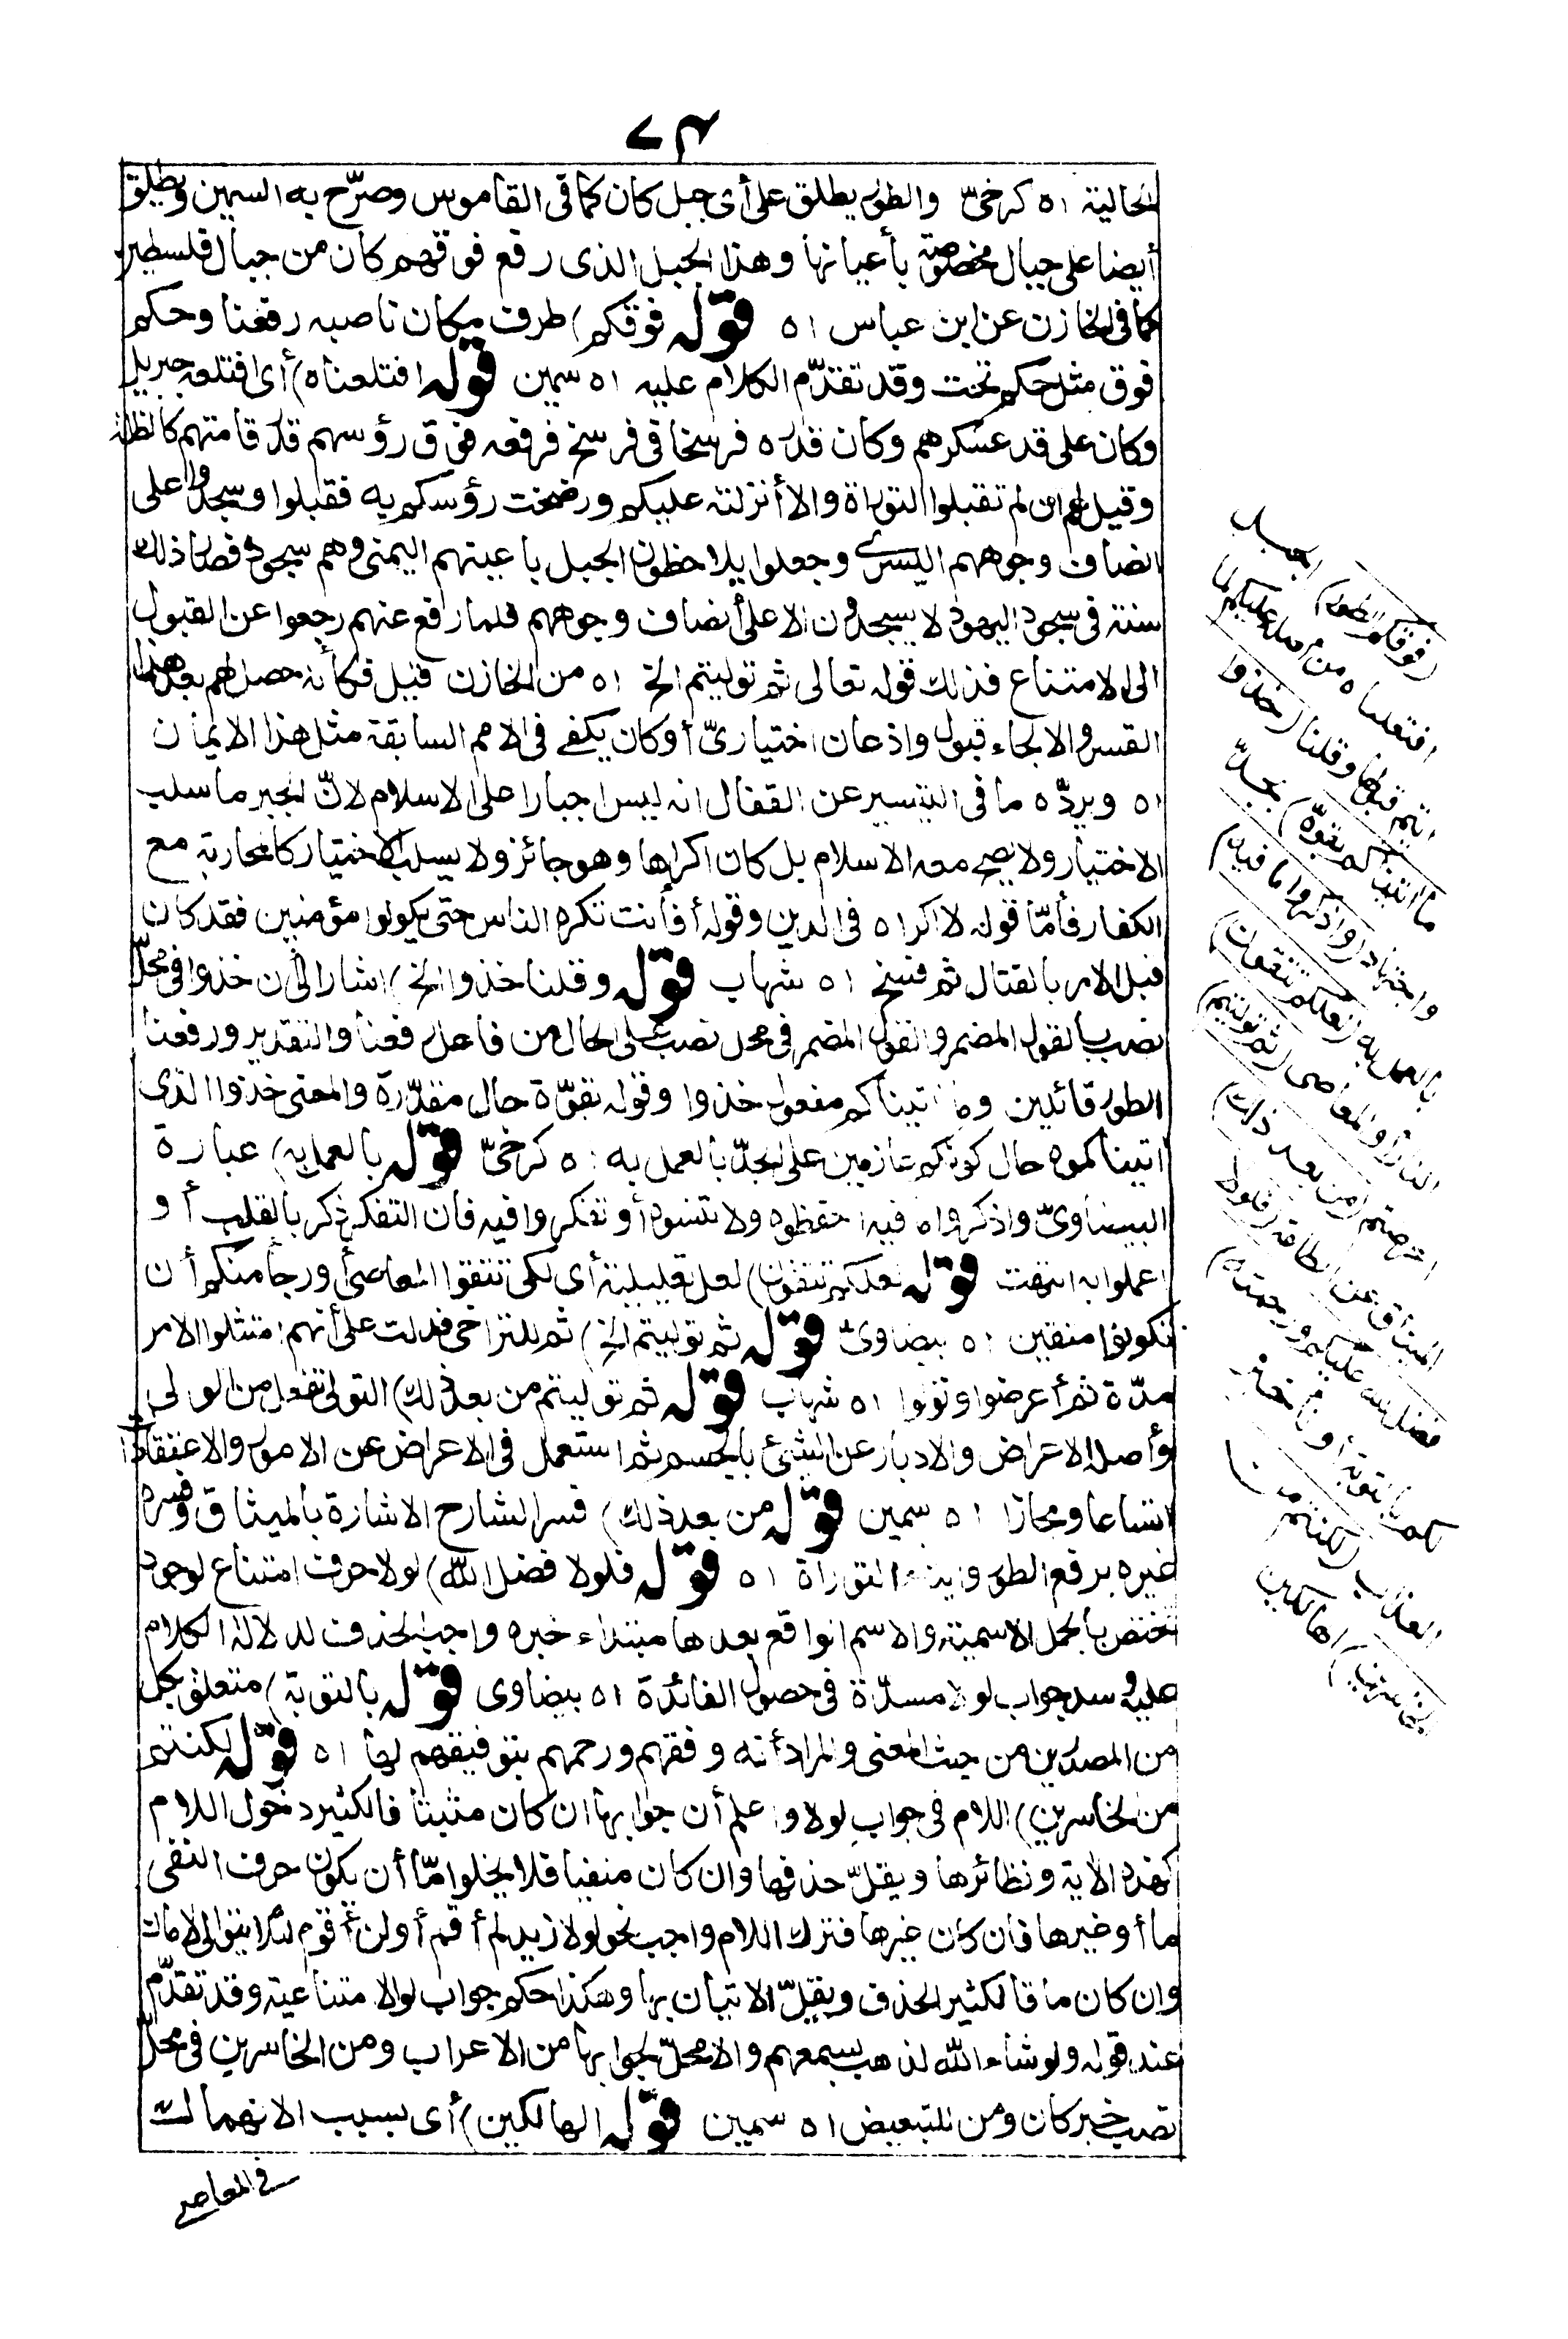 ٧٤
الحالية اه كرخىّ والطور يطلق على أى جبل كان كما فى القاموس وصرّح به السمين ويطلق
أيضا على جبال مخصوصة بأعيانها وهذا الجبل الذى رفع فوقهم كان من جبال فلسطين
كما فى الخازن عن ابن عباس اه قوله فوقكم) ظرف مكان ناصبه رفعنا وحكم
فوق مثل حكم تحت وقد تقدّم الكلام عليه اه سمين قوله اقتلعناه) أى اقتلعه جبريل
وكان على قدر عسكرهم وكان قدره فرسخا فى فرسخ فرفعه فوق رؤسهم قدر قامتهم كالظلة
وقيل لهم ان لم تقبلوا التوراة والا أنزلته عليكم ورضخت رؤسكم به فقبلوا وسجدوا على
انصاف وجوههم اليسرى وجعلوا يلاحظون الجبل باعينهم اليمنى وهم سجود فصار ذلك
سنة فى سجود اليهود لا يسجدون الا على أنصاف وجوههم فلما رفع عنهم رجعوا عن القبول
الى الامتناع فذلك قوله تعالى ثم توليتم الخ اه من الخازن قيل فكأنه حصل لهم بعد هذا
القسر والالجاء قبول واذعان اختيارىّ أو كان يكفى فى الامم السابقة مثل هذا الايمان
اه ويردّه ما فى التيسير عن القفال انه ليس اجبارا على الاسلام لانّ الجبر ما سلب
الاختيار ولا يصح معه الاسلام بل كان اكراها وهو جائز ولا يسلب الاختيار كالمحاربة مع
الكفار فأمّا قوله لا اكراه فى الدين وقوله أفأنت تكره الناس حتى يكونوا مؤمنين فقد كان
قبل الامر بالقتال ثم نسخ اه شهاب قوله وقلنا خذوا الخ) اشار الى أن خذوا فى محلّ
نصب بالقول المضمر والقول المضمر فى محل نصب على الحال من فاعل رفعنا والتقدير ورفعنا
الطور قائلين وما آتيناكم مفعول خذوا وقوله بقوّة حال مقدّرة والمعنى خذوا الذى
آتيناكموه حال كونكم عازمين على الجدّ بالعمل به اه كرخىّ قوله بالعمل به) عبارة
البيضاوىّ واذكروا ما فيه احفظوه ولا تنسوه أو تفكروا فيه فان التفكر ذكر بالقلب أو
اعملوا به انتهت قوله لعلكم تتقون) لعل تعليلية أى لكى تتقوا المعاصى أو رجا منكم أن
تكونوا متقين اه بيضاوىّ قوله ثم توليتم الخ) ثم للتراخى فدلت على أنهم امتثلوا الامر
مدّة ثم أعرضوا وتولوا اه شهاب قوله ثم توليتم من بعد ذلك) التولى تفعل من الولى
وأصله الاعراض والادبار عن الشئ بالجسم ثم استعمل فى الاعراض عن الامور والاعتقادات
اتساعا ومجازا اه سمين قوله من بعد ذلك) فسر الشارح الاشارة بالميثاق وفسره
غيره برفع الطور وايتاء التوراة اه قوله فلولا فضل الله) لولا حرف امتناع لوجود
تختص بالجمل الاسمية والاسم الواقع بعدها مبتداء خبره واجب الحذف لدلالة الكلام
عليه وسد جواب لولا مسدّه فى حصول الفائدة اه بيضاوى قوله بالتوبة) متعلق بكل
من المصدرين من حيث المعنى والمراد أنه وفقهم ورحمهم بتوفيقهم لها اه قوله لكنتم
من الخاسرين) اللام فى جواب لولا واعلم أن جوابها ان كان مثبتا فالكثير دخول اللام
كهذه الآية ونظائرها ويقلّ حذفها وان كان منفيا فلا يخلوا امّا أن يكون حرف النفى
ما أو غيرها فان كان غيرها فترك اللام واجب نحو لولا زيد لم أقم أو لن أقوم لئلا يتوالى لامان
وان كان ما فالكثير الحذف ويقلّ الاتيان بها وهكذا حكم جواب لو الامتناعية وقد تقدّم
عند قوله ولو شاء الله لذهب بسمعهم ولا محلّ لجوابها من الاعراب ومن الخاسرين فى محلّ
نصب خبر كان ومن للتبعيض اه سمين قوله الهالكين) أى بسبب الانهماك
فى المعاصى
(فوقكم الطور) الجبل
اقتلعناه من أصله عليكم لما
أبيتم قبولها وقلنا (خذوا
ما آتيناكم بقوّة) بجدّ
واجتهاد (واذكروا ما فيه)
بالعمل به (لعلكم تتقون)
النار أو المعاصى (ثم توليتم)
أعرضتم (من بعد ذلك)
الميثاق عن الطاعة (فلولا
فضل الله عليكم ورحمته)
لكم بالتوبة أو تأخير
العذاب (لكنتم من
الخاسرين) الهالكين